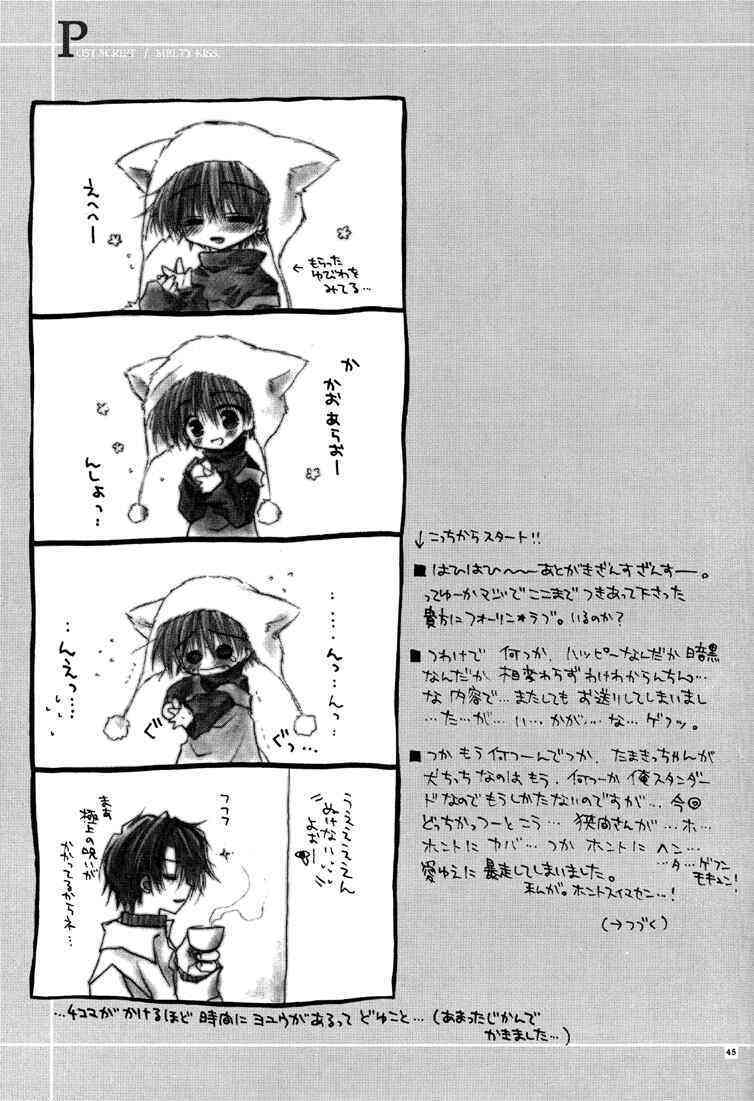 POST SCRIPT / MELTY KISS.
えへへー
←もらった
ゆびわを
みてる…
か
かおあらおー
んしょっ…
…んっ…んっ…
…んえっ…
ぐっ
ぐっ…
うええええん
ぬけない…
よおー
フフフ
まあ
極上の呪いが
かかってるからネ…
…4コマがかけるほど 時間に ヨユウがあるって どゆこと…(あまったじかんで
かきました…)
↓こっちからスタート!!
■はひはひ〜〜あとがきざんすざんすー。
ってゆーかマジでここまで つきあって下さった
貴方にフォーリン★ラブ。いるのか?
■つわけで 何つか、ハッピーなんだか暗黒
なんだか 相変わらず わけわからんちんっ…
な 内容で…またしても お送りしてしまいまし
…た…が… い…かが…な…ゲフッ。
■つか もう 何つーんでつか、たまきっちゃんが
犬ちっち なのは もう、何つーか 俺スタンダー
ドなのでもうしかたないのですが… 今回
どっちかっつーと こう… 狭間さんが… ホ…
ホントに ヤバ… つか ホントに ヘン…
…タ…ゲフン
モキュン!
愛ゆえに 暴走してしまいました。
私が。ホントスイマセン…!
(→つづく)
45